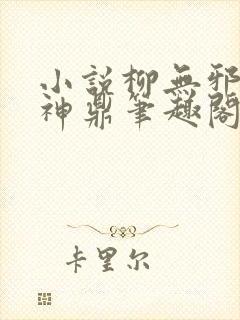 小說柳無邪
神鼎筆趣閣
卡里尔